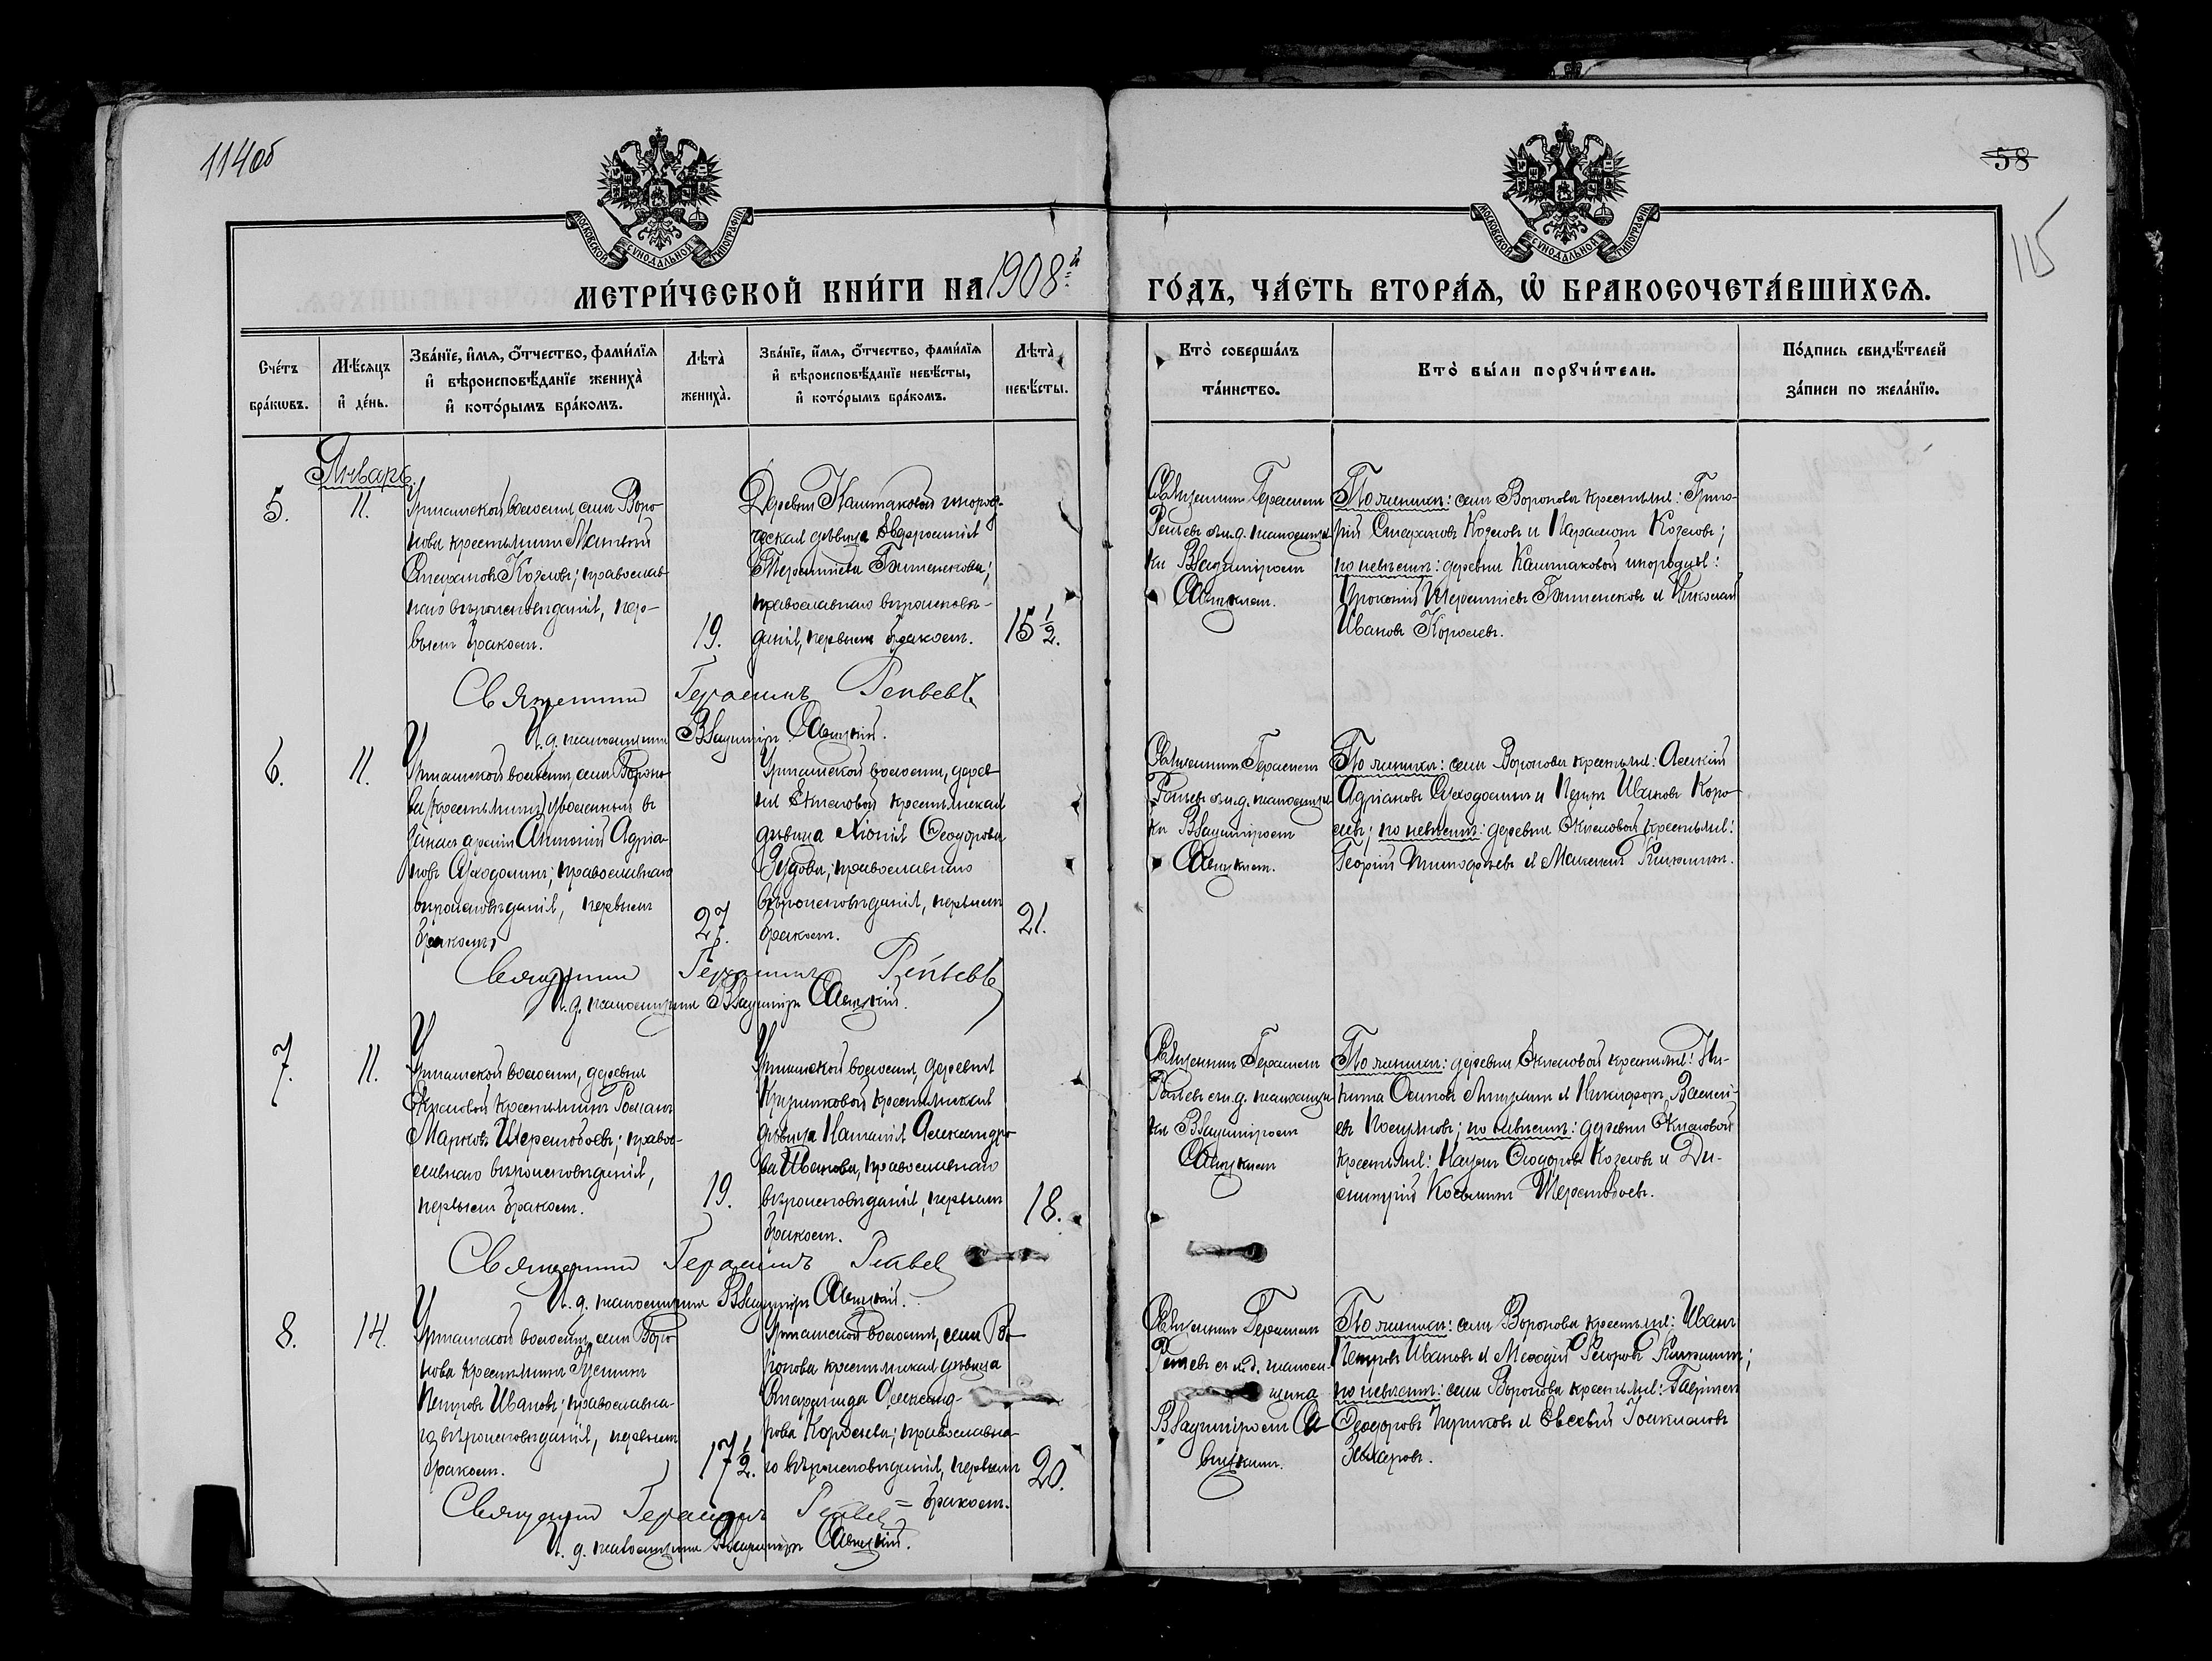 114об
58
115
МОСКОВСКОЙ СѴНОДАЛЬНОЙ ТИПОГРАФІИ
МОСКОВСКОЙ СѴНОДАЛЬНОЙ ТИПОГРАФІИ
МЕТРИ́ЧЕСКОЙ КНИ́ГИ НА 1908й
ГО́ДЪ, ЧА́СТЬ ВТОРА́Я, Ѡ҆ БРАКОСОЧЕТА́ВШИХСЯ.
Сче́тъ бра́кωвъ.
Мѣ́сяцъ и҆ де́нь.
Зва́нїе, и҆́мя, ѻ҆́тчество, фами́лїя
и҆ вѣроисповѣ́данїе жениха̀
и҆ кото́рымъ бра́комъ.
Лѣта̀ жениха̀.
Зва́нїе, и҆́мя, ѻ҆́тчество, фами́лїя
и҆ вѣроисповѣ́данїе невѣ́сты,
и҆ кото́рымъ бра́комъ.
Лѣта̀ невѣ́сты.
Кто̀ соверша́лъ
та́инство.
Кто̀ бы́ли порꙋчи́тели.
По́дпись свидѣ́телей
за́писи по жела́нїю.
Январь.
5.
11.
Уртамской волости, села Воро-
нова крестьянинъ Матвѣй
Стефановъ Козловъ; православ-
наго вѣроисповѣданія, пер-
вымъ бракомъ.
19.
Деревни Каштаковой инород-
ческая дѣвица Евфросинія
Терентіева
православнаго вѣроисповѣ-
данія, первымъ бракомъ.
15 1/2.
Священник Герасимъ
и. д. псаломщи-
ка Владиміромъ
Савицкимъ.
По женихѣ: села Воронова крестьяне: Григо-
рій Стефановъ Козловъ и Парамонъ Козловъ;
по невѣстѣ: деревни Каштаковой инородцы:
Прокопій Терентіевъ и Николай
Ивановъ Королевъ.
Священникъ Герасимъ
И. д. псаломщика Владиміръ Савицкій.
6.
11.
Уртамской волости, села Вороно-
ва (крестьянинъ) уволенный въ
запасъ арміи Антоній Адріа-
новъ Суходолинъ; православнаго
вѣроисповѣданія, первымъ
бракомъ
27.
Уртамской волости, дерев-
ни Екимовой крестьянская
дѣвица Хіонія Ѳеодорова
православнаго
вѣроисповѣданія, первымъ
бракомъ.
21.
Священник Герасимъ
и. д. псаломщи-
ка Владиміромъ
Савицкимъ.
По женихѣ: села Воронова крестьяне: Алексій
Адріановъ Суходолинъ и Петръ Ивановъ Коро-
левъ; по невѣстѣ: деревни Екимовой крестьяне:
Георгій и
Священникъ Герасимъ
И. д. псаломщика Владиміръ Савицкій.
7.
11.
Уртамской волости, деревни
Екимовой крестьянинъ Романъ
Марковъ Шерстобоевъ; право-
славнаго вѣроисповѣданія,
первымъ бракомъ.
19.
Уртамской волости, деревни
крестьянская
дѣвица Наталія Александро-
ва Иванова, православнаго
вѣроисповѣданія, первымъ
бракомъ.
18.
Священник Герасимъ
и. д. псаломщи-
ка Владиміромъ
Савицкимъ
По женихѣ: деревни Екимовой крестьяне: Ни-
кита Осиповъ и Никифоръ Василі-
евъ по невѣстѣ: деревни Екимовой
крестьяне: Наумъ Ѳеодоровъ Козловъ и Ди-
митрій Косминъ Шерстобоевъ.
Священникъ Герасимъ
И. д. псаломщика Владиміръ Савицкій.
8.
14.
Уртамской волости, села Воро-
нова крестьянинъ
Петровъ Ивановъ; православна-
го вѣроисповѣданія, первымъ
бракомъ.
17 1/2.
Уртамской волости, села Во-
ронова крестьянская дѣвица
Александ-
рова Королева; православна-
го вѣроисповѣданія, первымъ
= бракомъ.
20.
Священник Герасимъ
и. д. псалом-
щика
Владиміромъ Са-
вицкимъ.
По женихѣ: села Воронова крестьяне: Иванъ
Петровъ Ивановъ и Меѳодій
по невѣстѣ: села Воронова крестьяне: Гавріилъ
Ѳеодоровъ и Евсевій
Захаровъ.
Священникъ Герасимъ
И. д. псаломщика Владиміръ Савицкій.